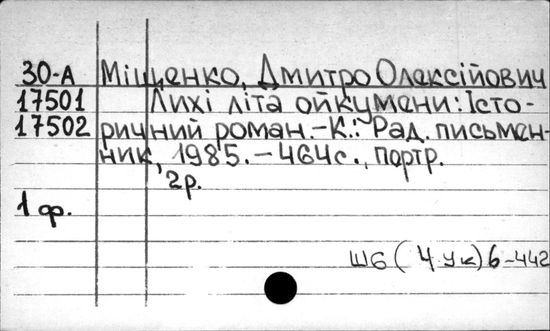 30-А Міщенко, Дмитро Олексійович
17501 Лихі літа ойкумени: Істо-
17502 ричний роман.-К.: Рад. письмен-
ник, 1985.-464с., портр.
2р.
1 ф.
Ш6(4Ук)6-442